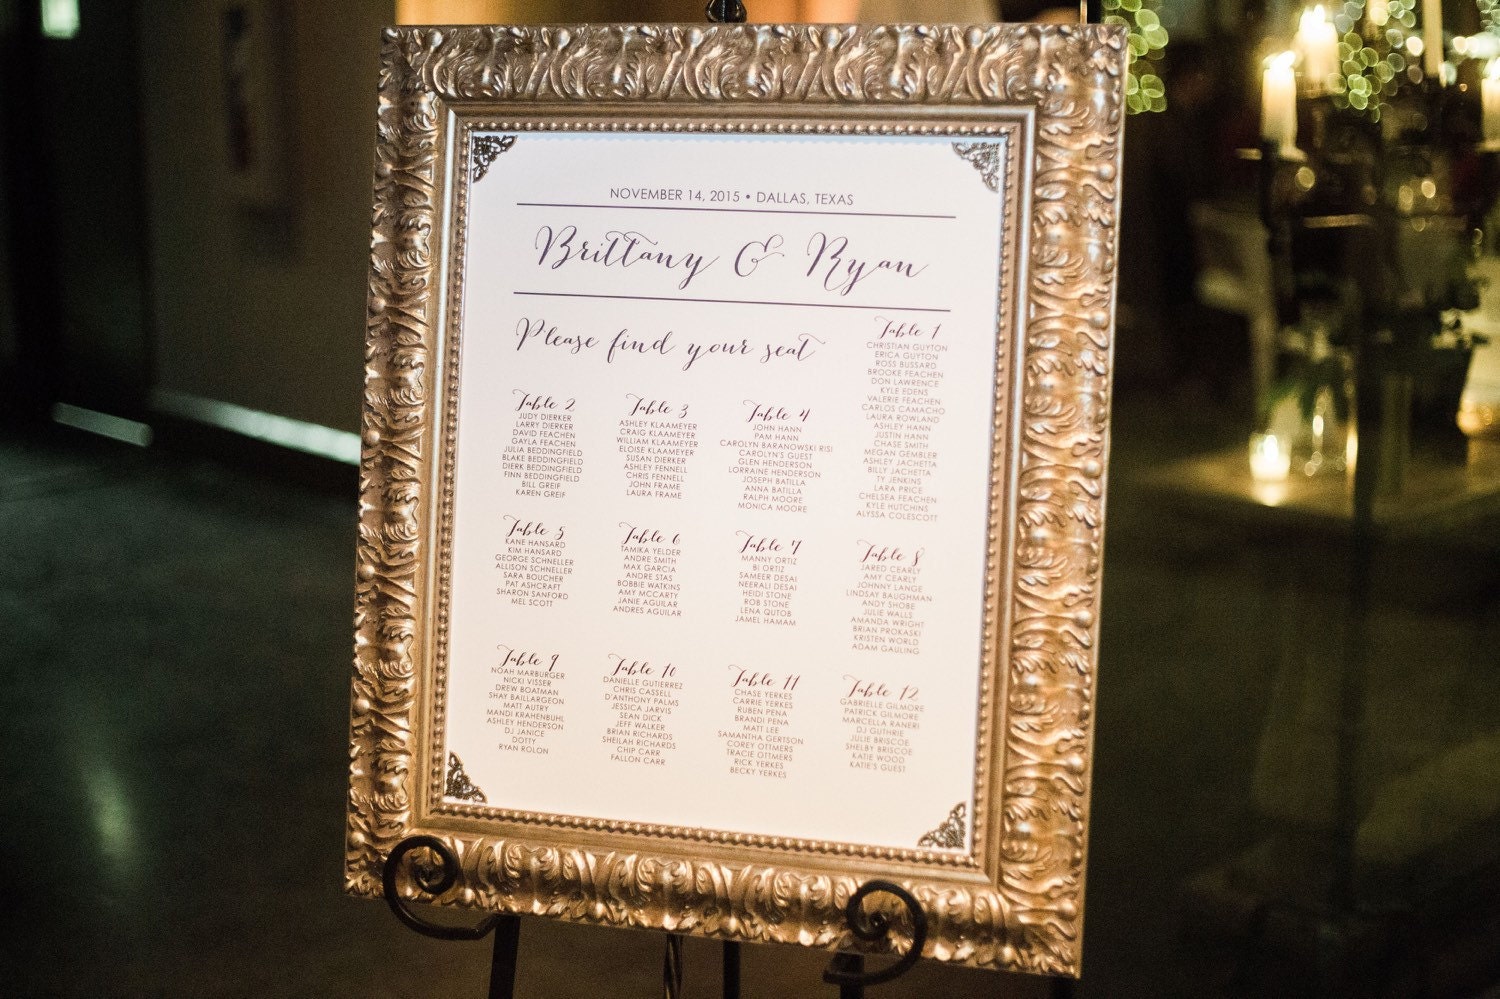 NOVEMBER 14, 2015 • DALLAS, TEXAS
Brittany & Ryan
Please find your seat
Table 1
CHRISTIAN GUYTON
ERICA GUYTON
ROSS BUSSARD
BROOKE FEACHEN
DON LAWRENCE
KYLE EDENS
VALERIE FEACHEN
CARLOS CAMACHO
LAURA ROWLAND
ASHLEY HANN
JUSTIN HANN
CHASE SMITH
MEGAN GEMBLER
ASHLEY JACHETTA
BILLY JACHETTA
TY JENKINS
LARA PRICE
CHELSEA FEACHEN
KYLE HUTCHINS
ALYSSA COLESCOTT
Table 2
JUDY DIERKER
LARRY DIERKER
DAVID FEACHEN
GAYLA FEACHEN
JULIA BEDDINGFIELD
BLAKE BEDDINGFIELD
DIERK BEDDINGFIELD
FINN BEDDINGFIELD
BILL GREIF
KAREN GREIF
Table 3
ASHLEY KLAAMEYER
CRAIG KLAAMEYER
WILLIAM KLAAMEYER
ELOISE KLAAMEYER
SUSAN DIERKER
ASHLEY FENNELL
CHRIS FENNELL
JOHN FRAME
LAURA FRAME
Table 4
JOHN HANN
PAM HANN
CAROLYN BARANOWSKI RISI
CAROLYN'S GUEST
GLEN HENDERSON
LORRAINE HENDERSON
JOSEPH BATILLA
ANNA BATILLA
RALPH MOORE
MONICA MOORE
Table 5
KANE HANSARD
KIM HANSARD
GEORGE SCHNELLER
ALLISON SCHNELLER
SARA BOUCHER
PAT ASHCRAFT
SHARON SANFORD
MEL SCOTT
Table 6
TAMIKA YELDER
ANDRE SMITH
MAX GARCIA
ANDRE STAS
BOBBIE WATKINS
AMY MCCARTY
JANIE AGUILAR
ANDRES AGUILAR
Table 7
MANNY ORTIZ
BI ORTIZ
SAMEER DESAI
NEERALI DESAI
HEIDI STONE
ROB STONE
LENA QUTOB
JAMEL HAMAM
Table 8
JARED CEARLY
AMY CEARLY
JOHNNY LANGE
LINDSAY BAUGHMAN
ANDY SHOBE
JULIE WALLS
AMANDA WRIGHT
BRIAN PROKASKI
KRISTEN WORLD
ADAM GAULING
Table 9
NOAH MARBURGER
NICKI VISSER
DREW BOATMAN
SHAY BAILLARGEON
MATT AUTRY
MANDI KRAHENBUHL
ASHLEY HENDERSON
DJ JANICE
DOTTY
RYAN ROLON
Table 10
DANIELLE GUTIERREZ
CHRIS CASSELL
D'ANTHONY PALMS
JESSICA JARVIS
SEAN DICK
JEFF WALKER
BRIAN RICHARDS
SHEILAH RICHARDS
CHIP CARR
FALLON CARR
Table 11
CHASE YERKES
CARRIE YERKES
RUBEN PENA
BRANDI PENA
MATT LEE
SAMANTHA GERTSON
COREY OTTMERS
TRACIE OTTMERS
RICK YERKES
BECKY YERKES
Table 12
GABRIELLE GILMORE
PATRICK GILMORE
MARCELLA RANERI
DJ GUTHRIE
JULIE BRISCOE
SHELBY BRISCOE
KATIE WOOD
KATIE'S GUEST